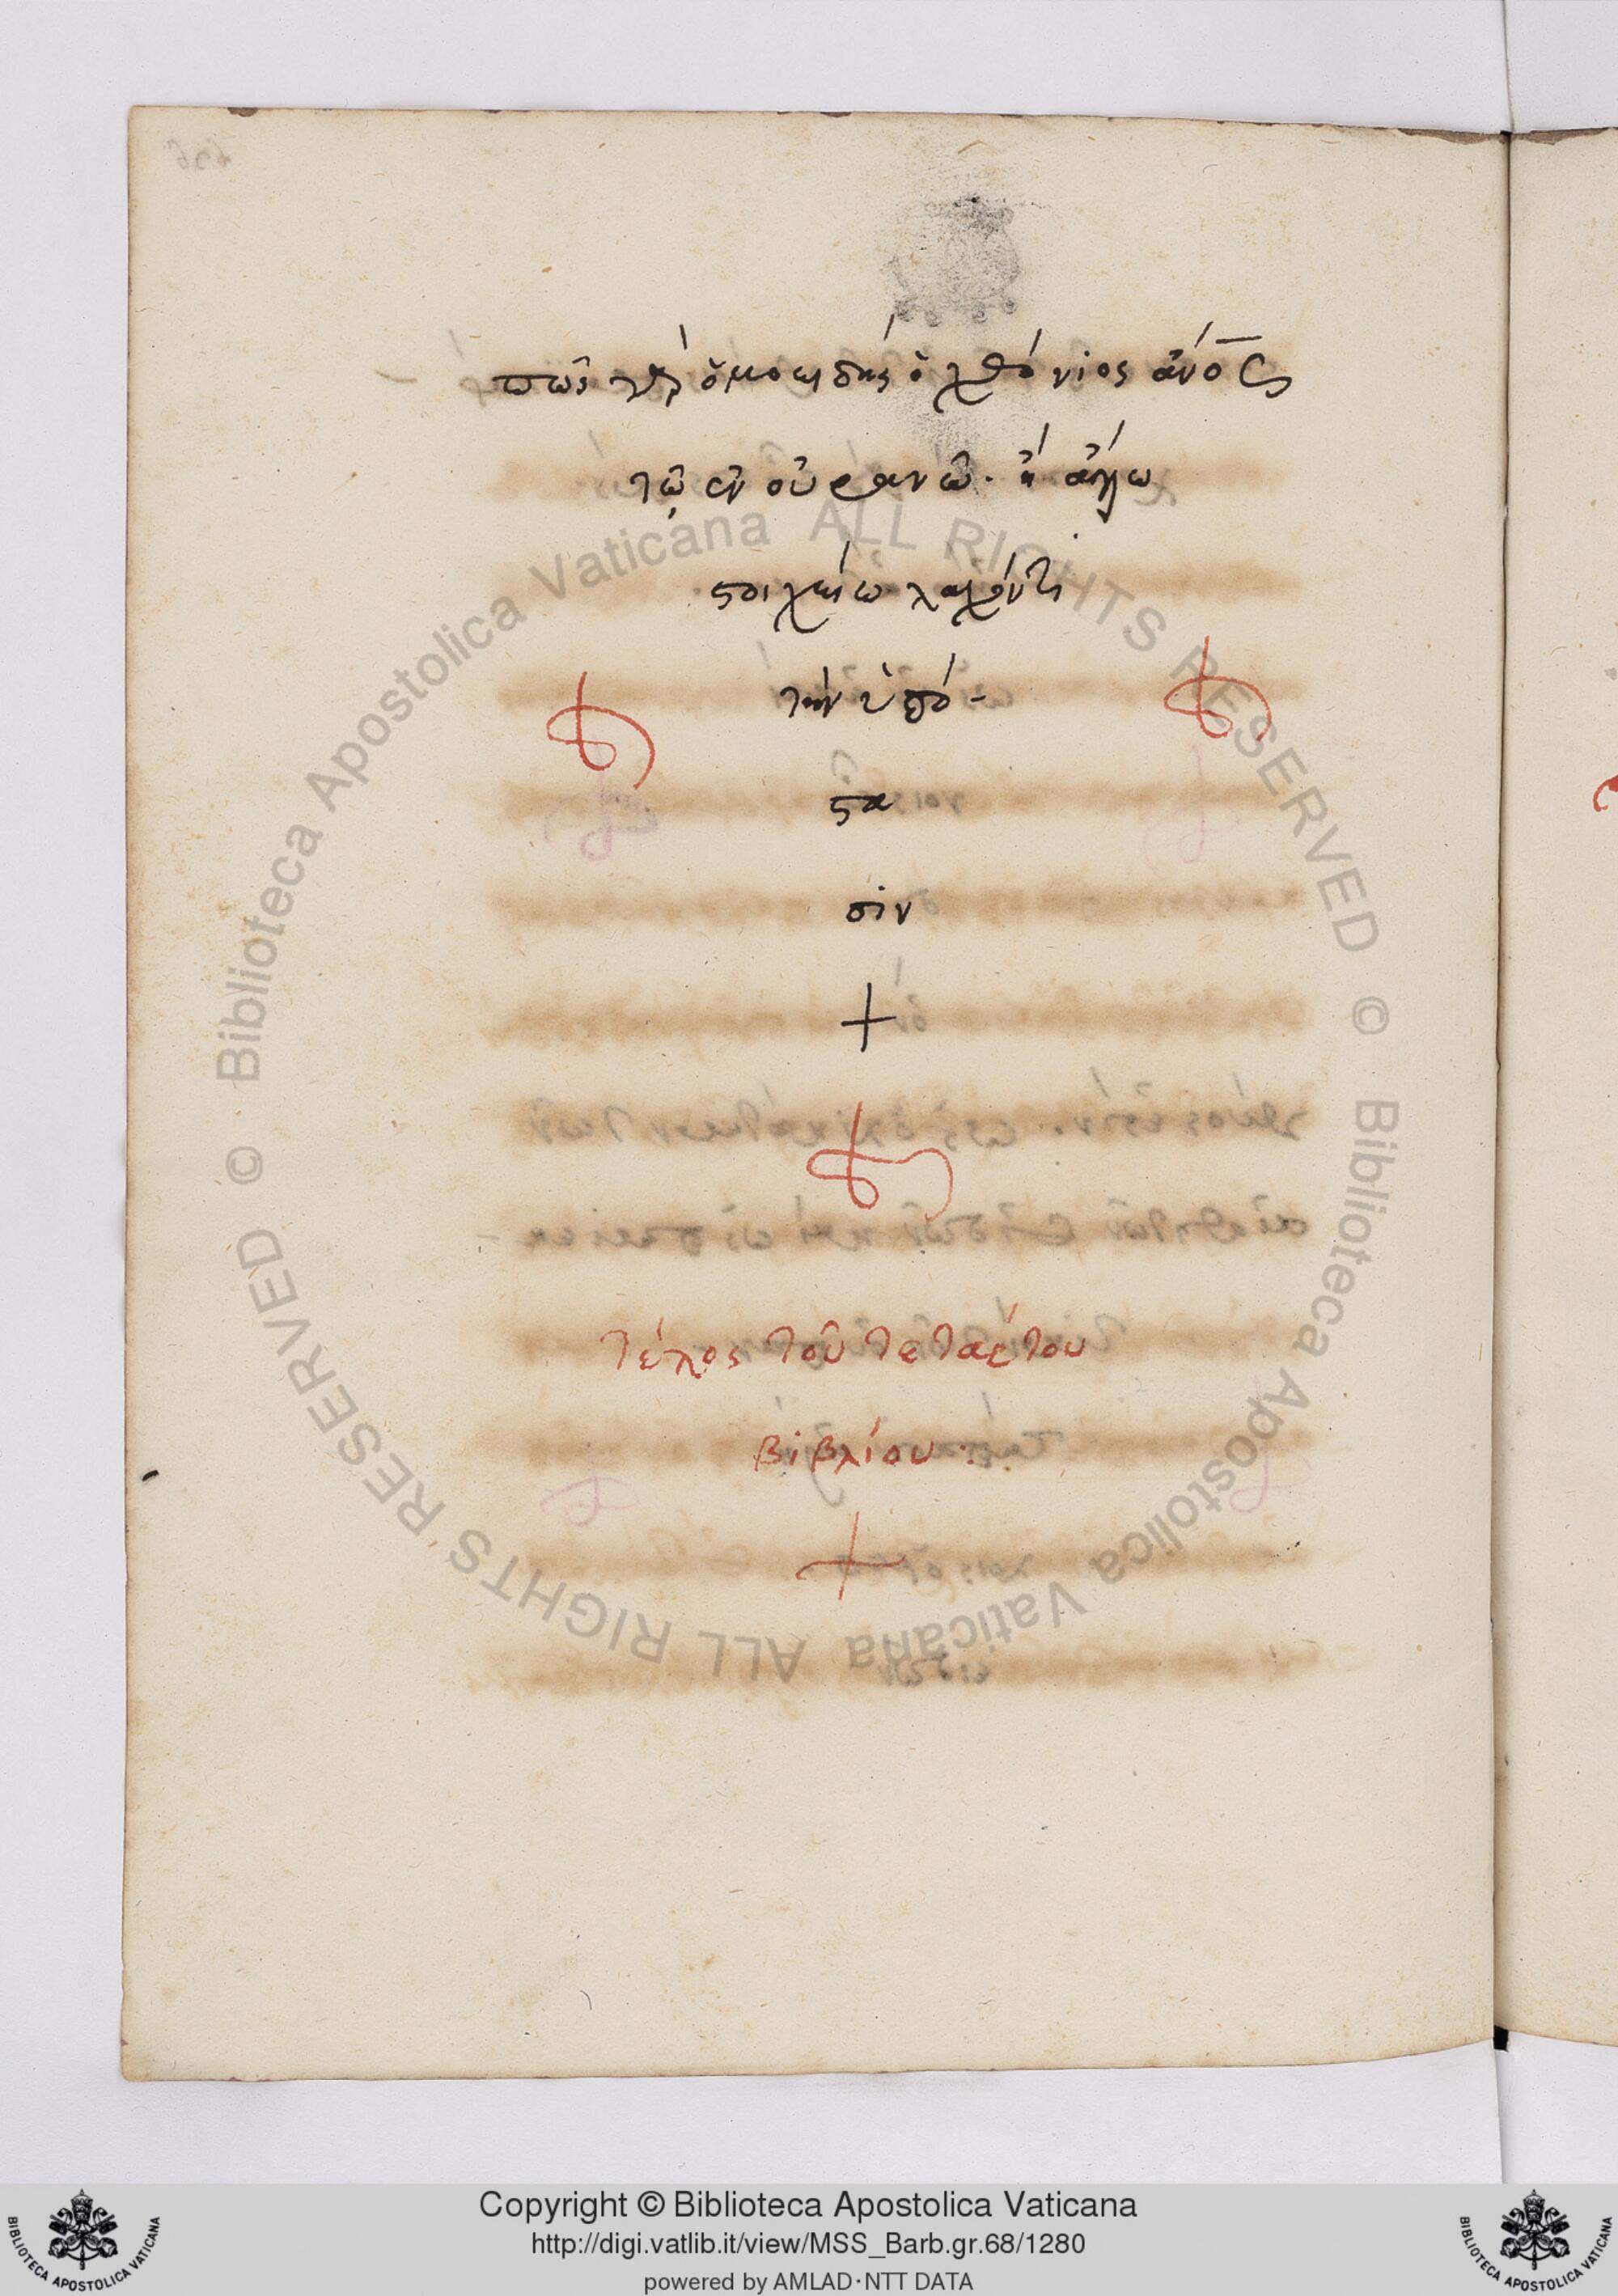 πῶς γὰρ ὁμοειδὴς ὁ χθόνιος ἄνος
τῶ ἐν οὐρανῶ. ἢ ἄλλω
στοιχείω λαχόντι
τὴν ὑπό-
στα
σιν
+
τέλος τοῦ τετάρτου
βιβλίου :
+
© Biblioteca Apostolica Vaticana ALL RIGHTS RESERVED
© Biblioteca Apostolica Vaticana ALL RIGHTS RESERVED
Copyright © Biblioteca Apostolica Vaticana
http://digi.vatlib.it/view/MSS_Barb.gr.68/1280
powered by AMLAD·NTT DATA
BIBLIOTECA APOSTOLICA VATICANA
BIBLIOTECA APOSTOLICA VATICANA